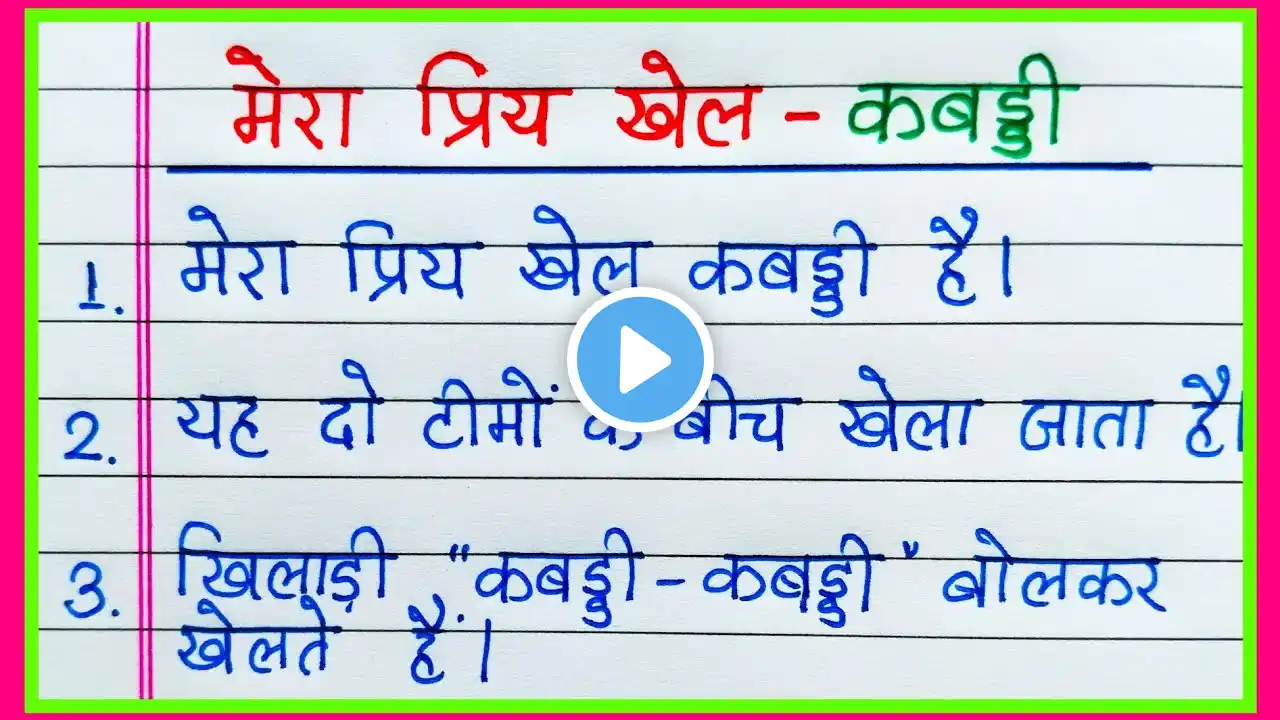 मेरा प्रिय खेल - कबड्डी
1. मेरा प्रिय खेल कबड्डी है।
2. यह दो टीमों के बीच खेला जाता है।
3. खिलाड़ी "कबड्डी - कबड्डी" बोलकर
खेलते हैं।